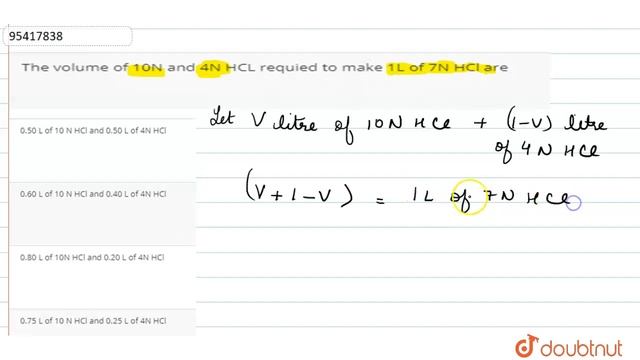 95417838
The volume of 10N and 4N HCL requied to make 1L of 7N HCl are
Let V litre of 10N HCl + (1-V) litre
of 4N HCl
0.50 L of 10 N HCl and 0.50 L of 4N HCl
(V+1-V) = 1L of 7N HCl
0.60 L of 10 N HCl and 0.40 L of 4N HCl
0.80 L of 10N HCl and 0.20 L of 4N HCl
0.75 L of 10 N HCl and 0.25 L of 4N HCl
doubtnut